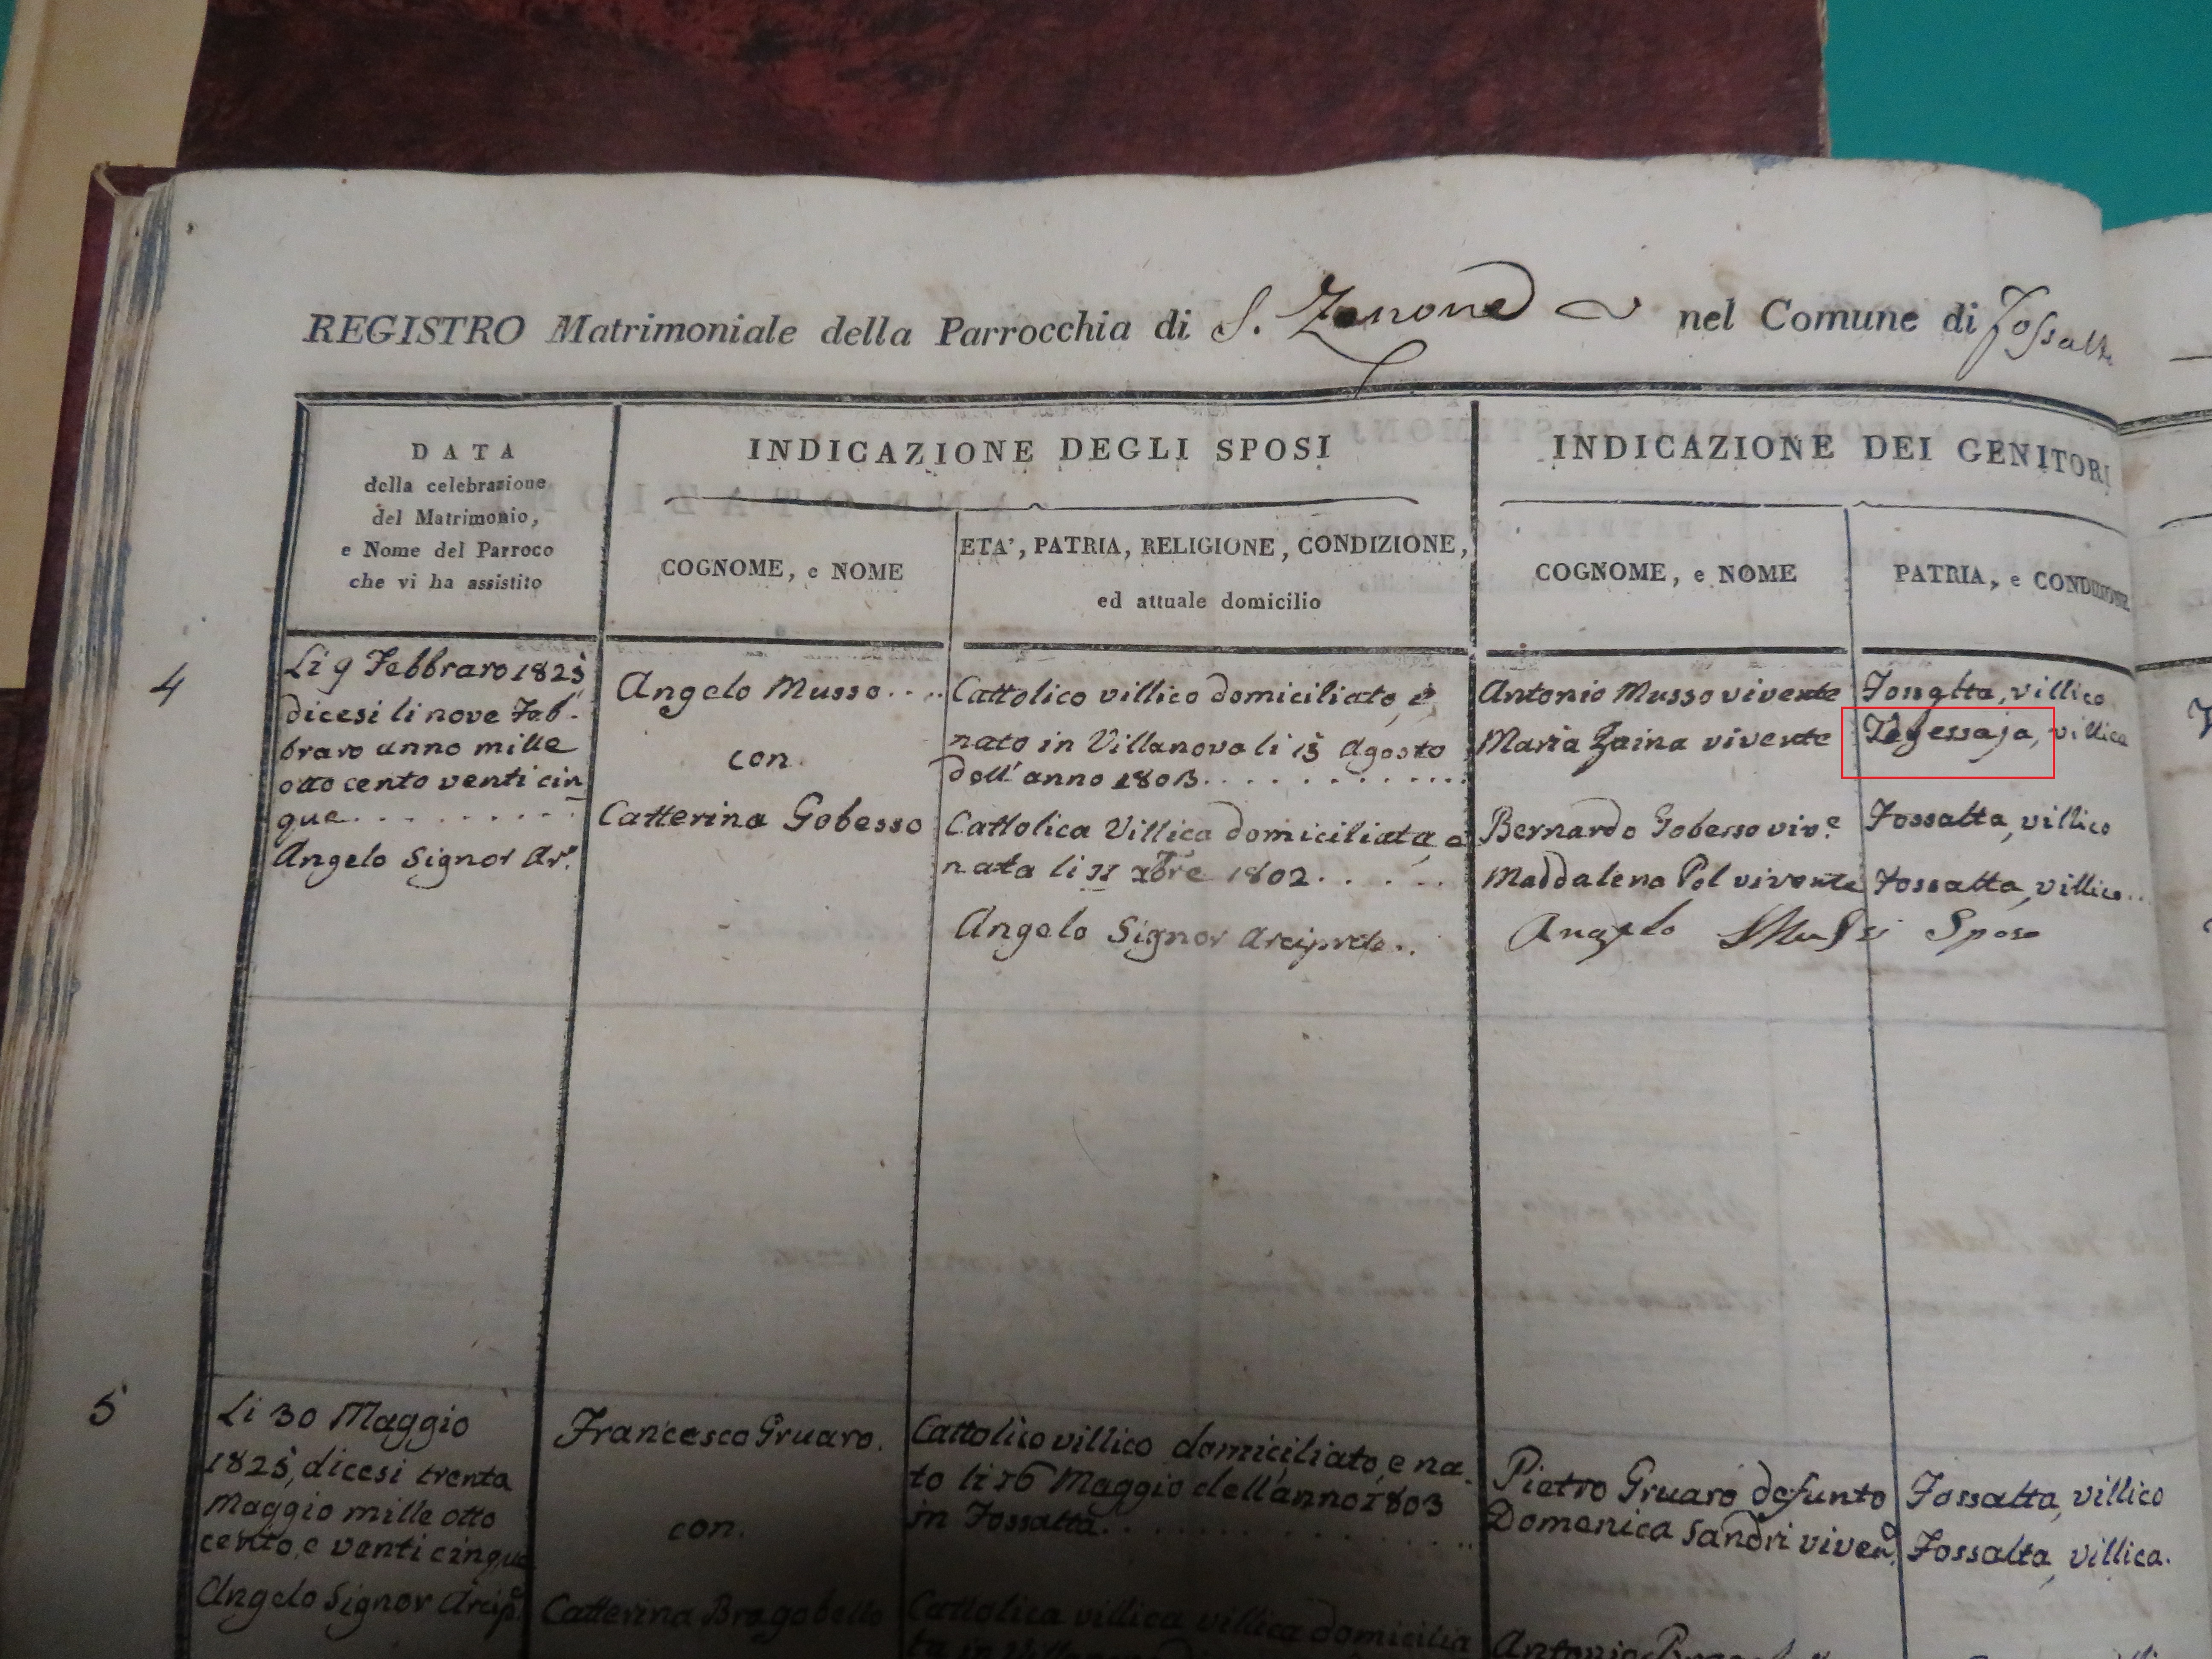 REGISTRO Matrimoniale della Parrocchia di S. Zenone nel Comune di Fossalta
DATA
della celebrazione
del Matrimonio,
e Nome del Parroco
che vi ha assistito
INDICAZIONE DEGLI SPOSI
COGNOME, e NOME
ETA', PATRIA, RELIGIONE, CONDIZIONE,
ed attuale domicilio
INDICAZIONE DEI GENITORI
COGNOME, e NOME
PATRIA, e CONDIZIONE
4
Li 9 Febbraro 1825
dicesi li nove Feb-
braro anno mille
otto cento venti cin
que.........
Angelo Signor Ar.e
Angelo Musso....
con.
Catterina Gobesso
Cattolico villico domiciliato, e
nato in Villanova li 15 Agosto
dell'anno 1803............
Cattolica Villica domiciliata e
nata li 11 xbre 1802.....
Angelo Signor Arciprete..
Antonio Musso vivente
Maria Zaina vivente
Bernardo Gobesso viv.e
Maddalena Pol vivente
Angelo Mussi Sposo
Fossalta, villico
villica
Fossalta, villico
Fossalta, villica..
5
Li 30 Maggio
1825, dicesi trenta
Maggio mille otto
cento, e venti cinque
Angelo Signor Arcip.e
Francesco Gruaro.
con.
Catterina Bragobello
Cattolico villico domiciliato, e na-
to li 16 Maggio dell'anno 1803
in Fossalta.
Cattolica villica villica domicilia
ta in
Pietro Gruaro defunto
Domenica Sandri viven.e
Antonio
Fossalta, villico
Fossalta, villica.